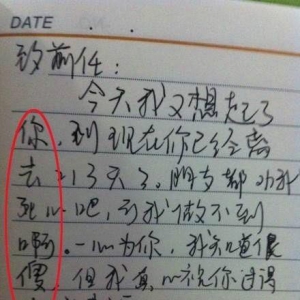 DATE
致前任:
今天我又想起了
你,到现在你已经离
去113天了。朋友都劝我
死心吧,可我做不到
啊。一心为你,我知道很
傻,但我真心祝你过得